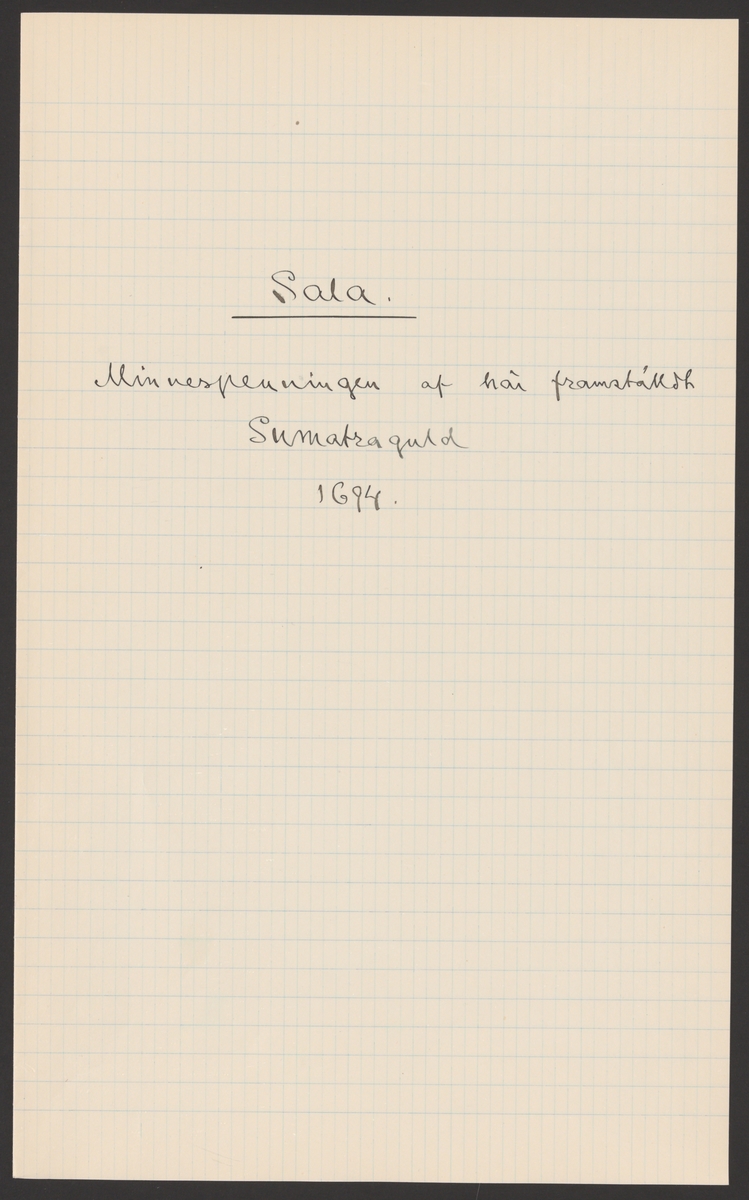 Sala.
Minnespenningen af här framstäldt
Sumatraguld
1694.